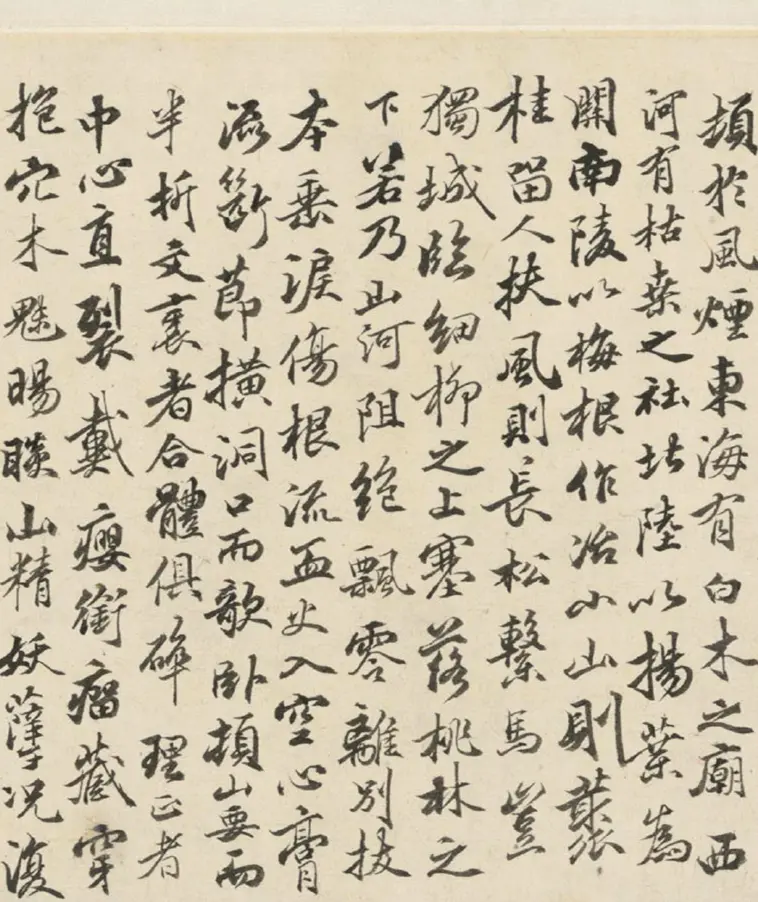 頓於風煙東海有白木之廟西
河有枯桑之社北陸以揚葉為
關南陵以梅根作冶小山則叢
桂留人扶風則長松繫馬豈
獨城臨細柳之上塞落桃林之
下若乃山河阻絕飄零離別拔
本垂淚傷根流血火入空心膏
流斷節橫洞口而欹臥頓山要而
半折文衺者合體俱碎理正者
中心直裂戴癭銜瘤藏穿
抱穴木魅睗睒山精妖孽況復